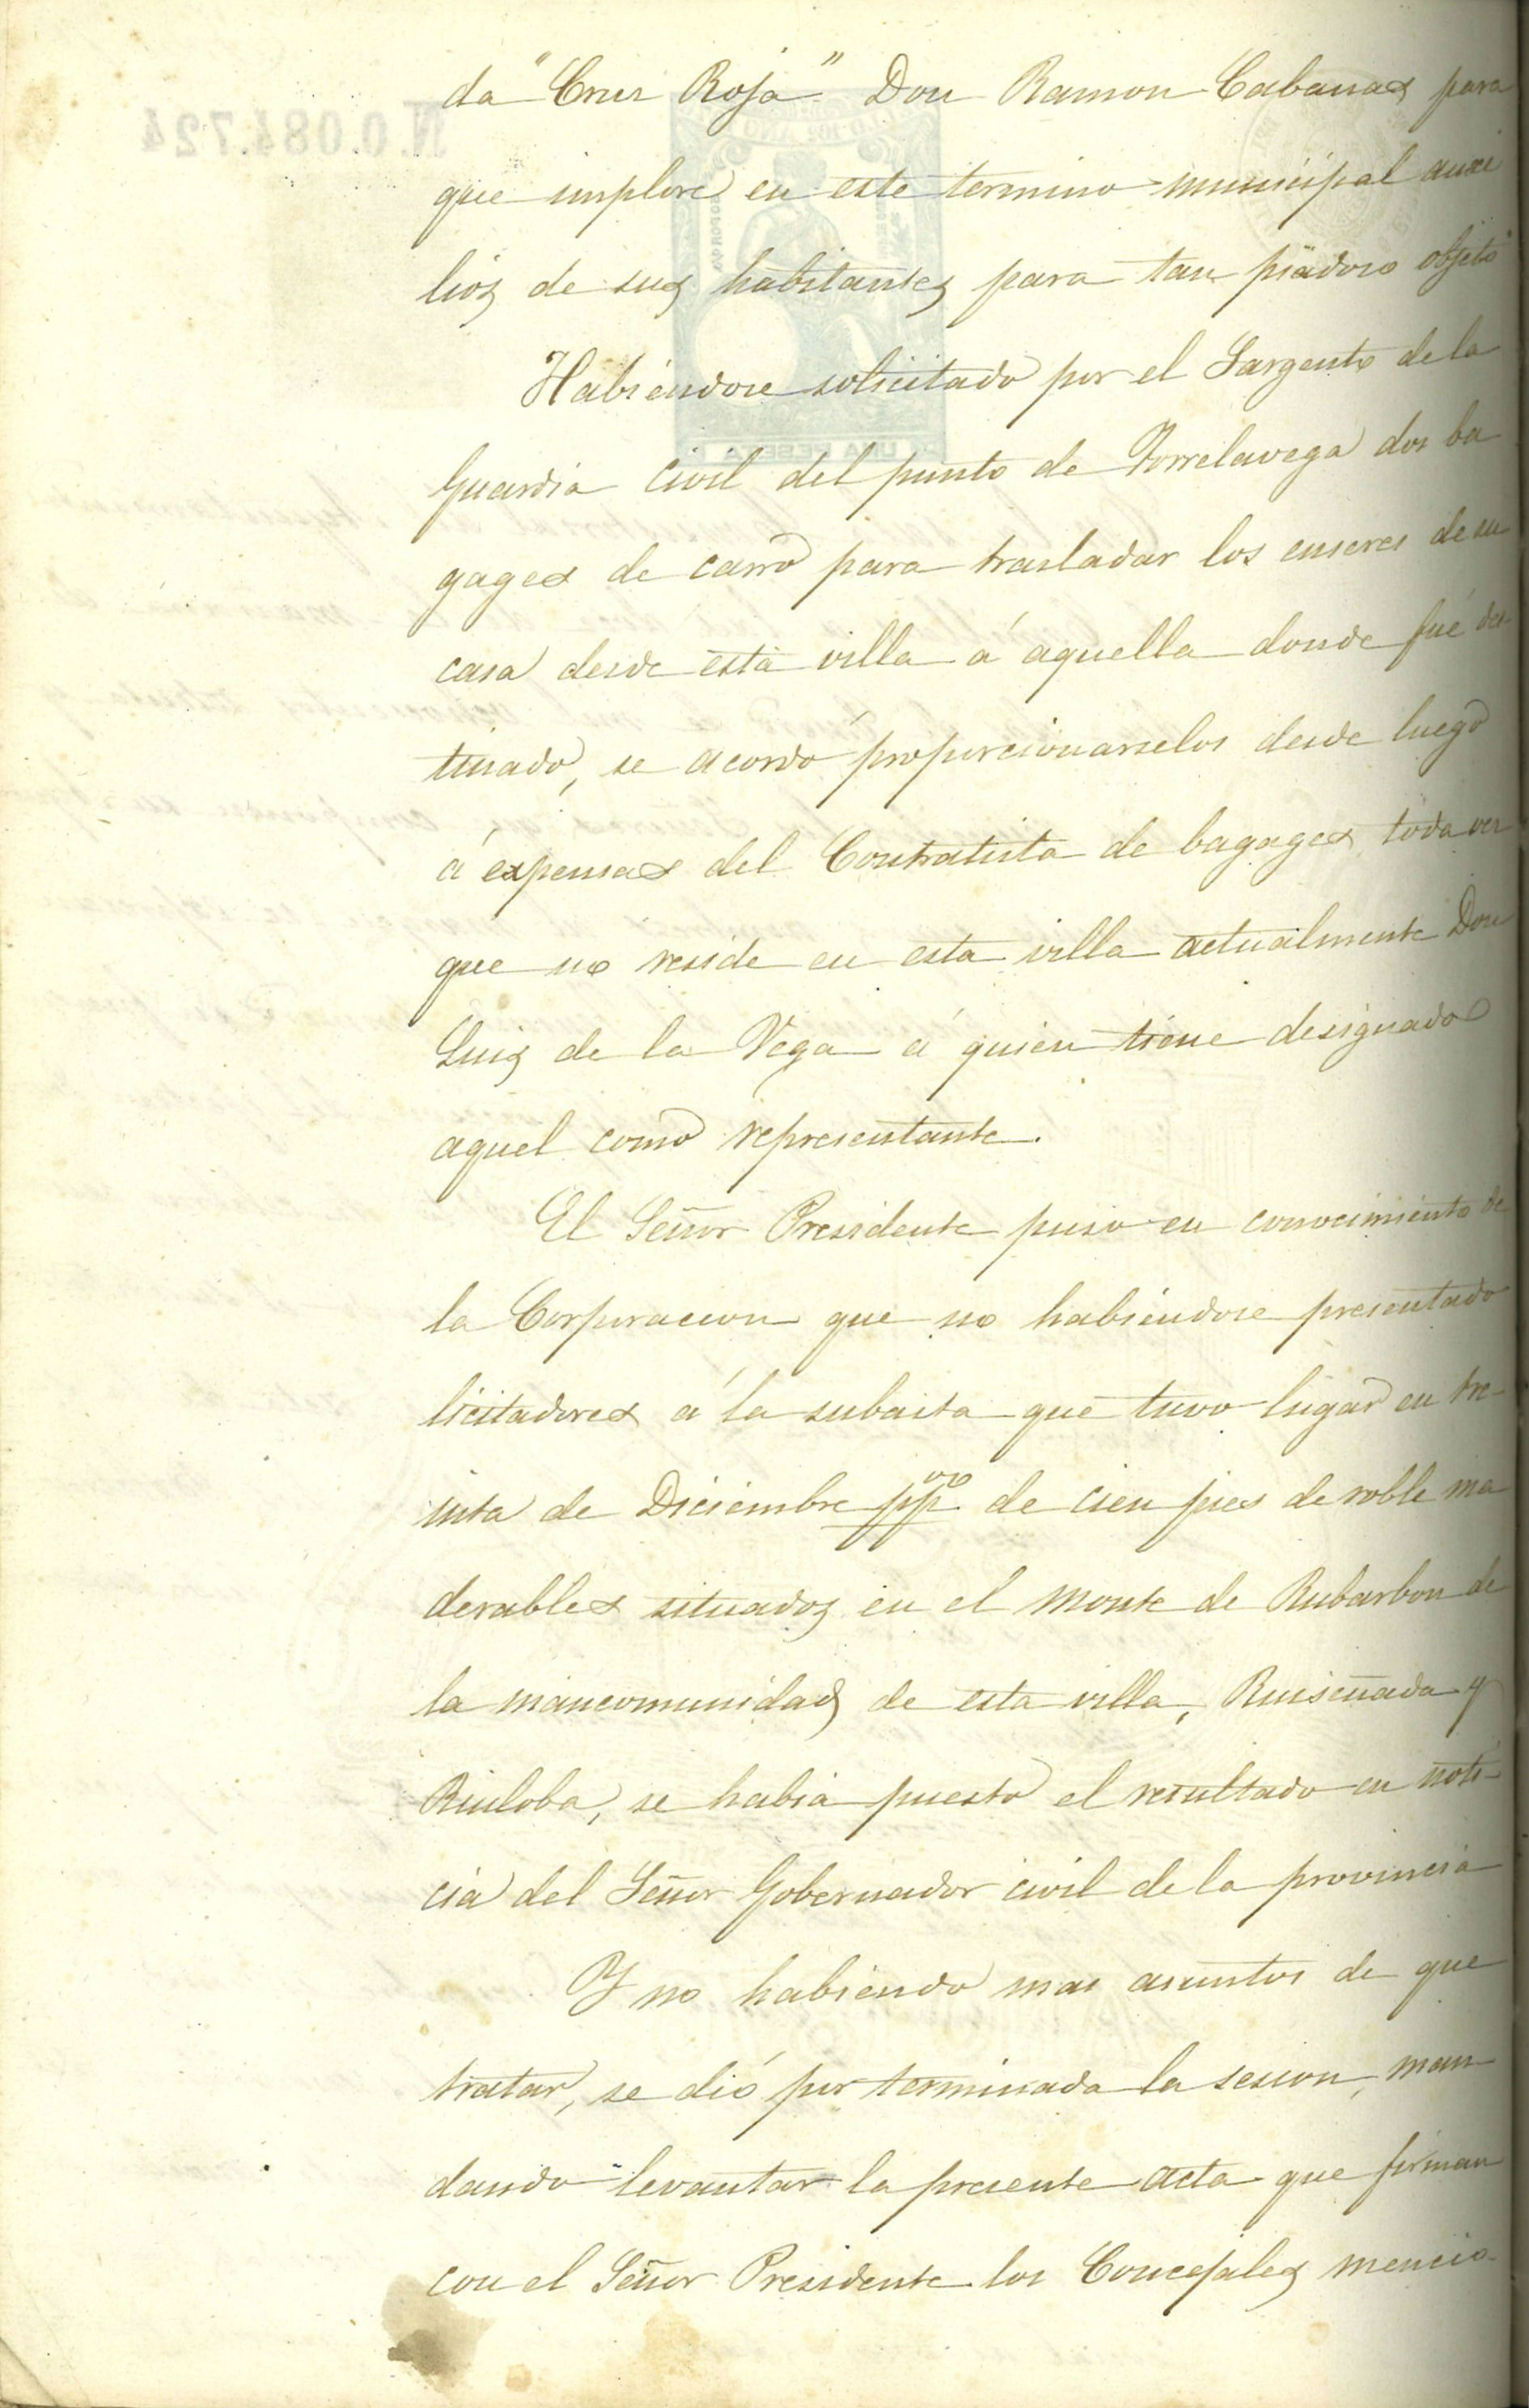 da "Cruz Roja" Don Ramon Cabanas para
que implore en este termino municipal auxi
lios de sus habitantes para tan piadoso objeto
Habiendose solicitado por el Sargento de la
Guardia Civil del punto de Torrelavega dos ba
gages de carro para trasladar los enseres de su
casa desde esta villa á aquella donde fué des-
tinado, se acordó proporcionarselos desde luego
á expensas del Contratista de bagages toda vez
que no reside en esta villa actualmente Don
Luis de la Vega á quien tiene designado
aquel como representante.
El Señor Presidente puso en conocimiento de
la Corporacion que no habiendose presentado
licitadores á la subasta que tuvo lugar en tre-
inta de Diciembre ppº de cien pies de roble ma
derables situados en el monte de Rubarbon de
la mancomunidad de esta villa, Ruiseñada y
Ruiloba, se habia puesto el resultado en noti-
cia del Señor Gobernador civil de la provincia
Y no habiendo mas asuntos de que
tratar, se dió por terminada la sesion, man
dando levantar la presente acta que firman
con el Señor Presidente los Concejales mencio-
N.0.084.724
UNA PESETA